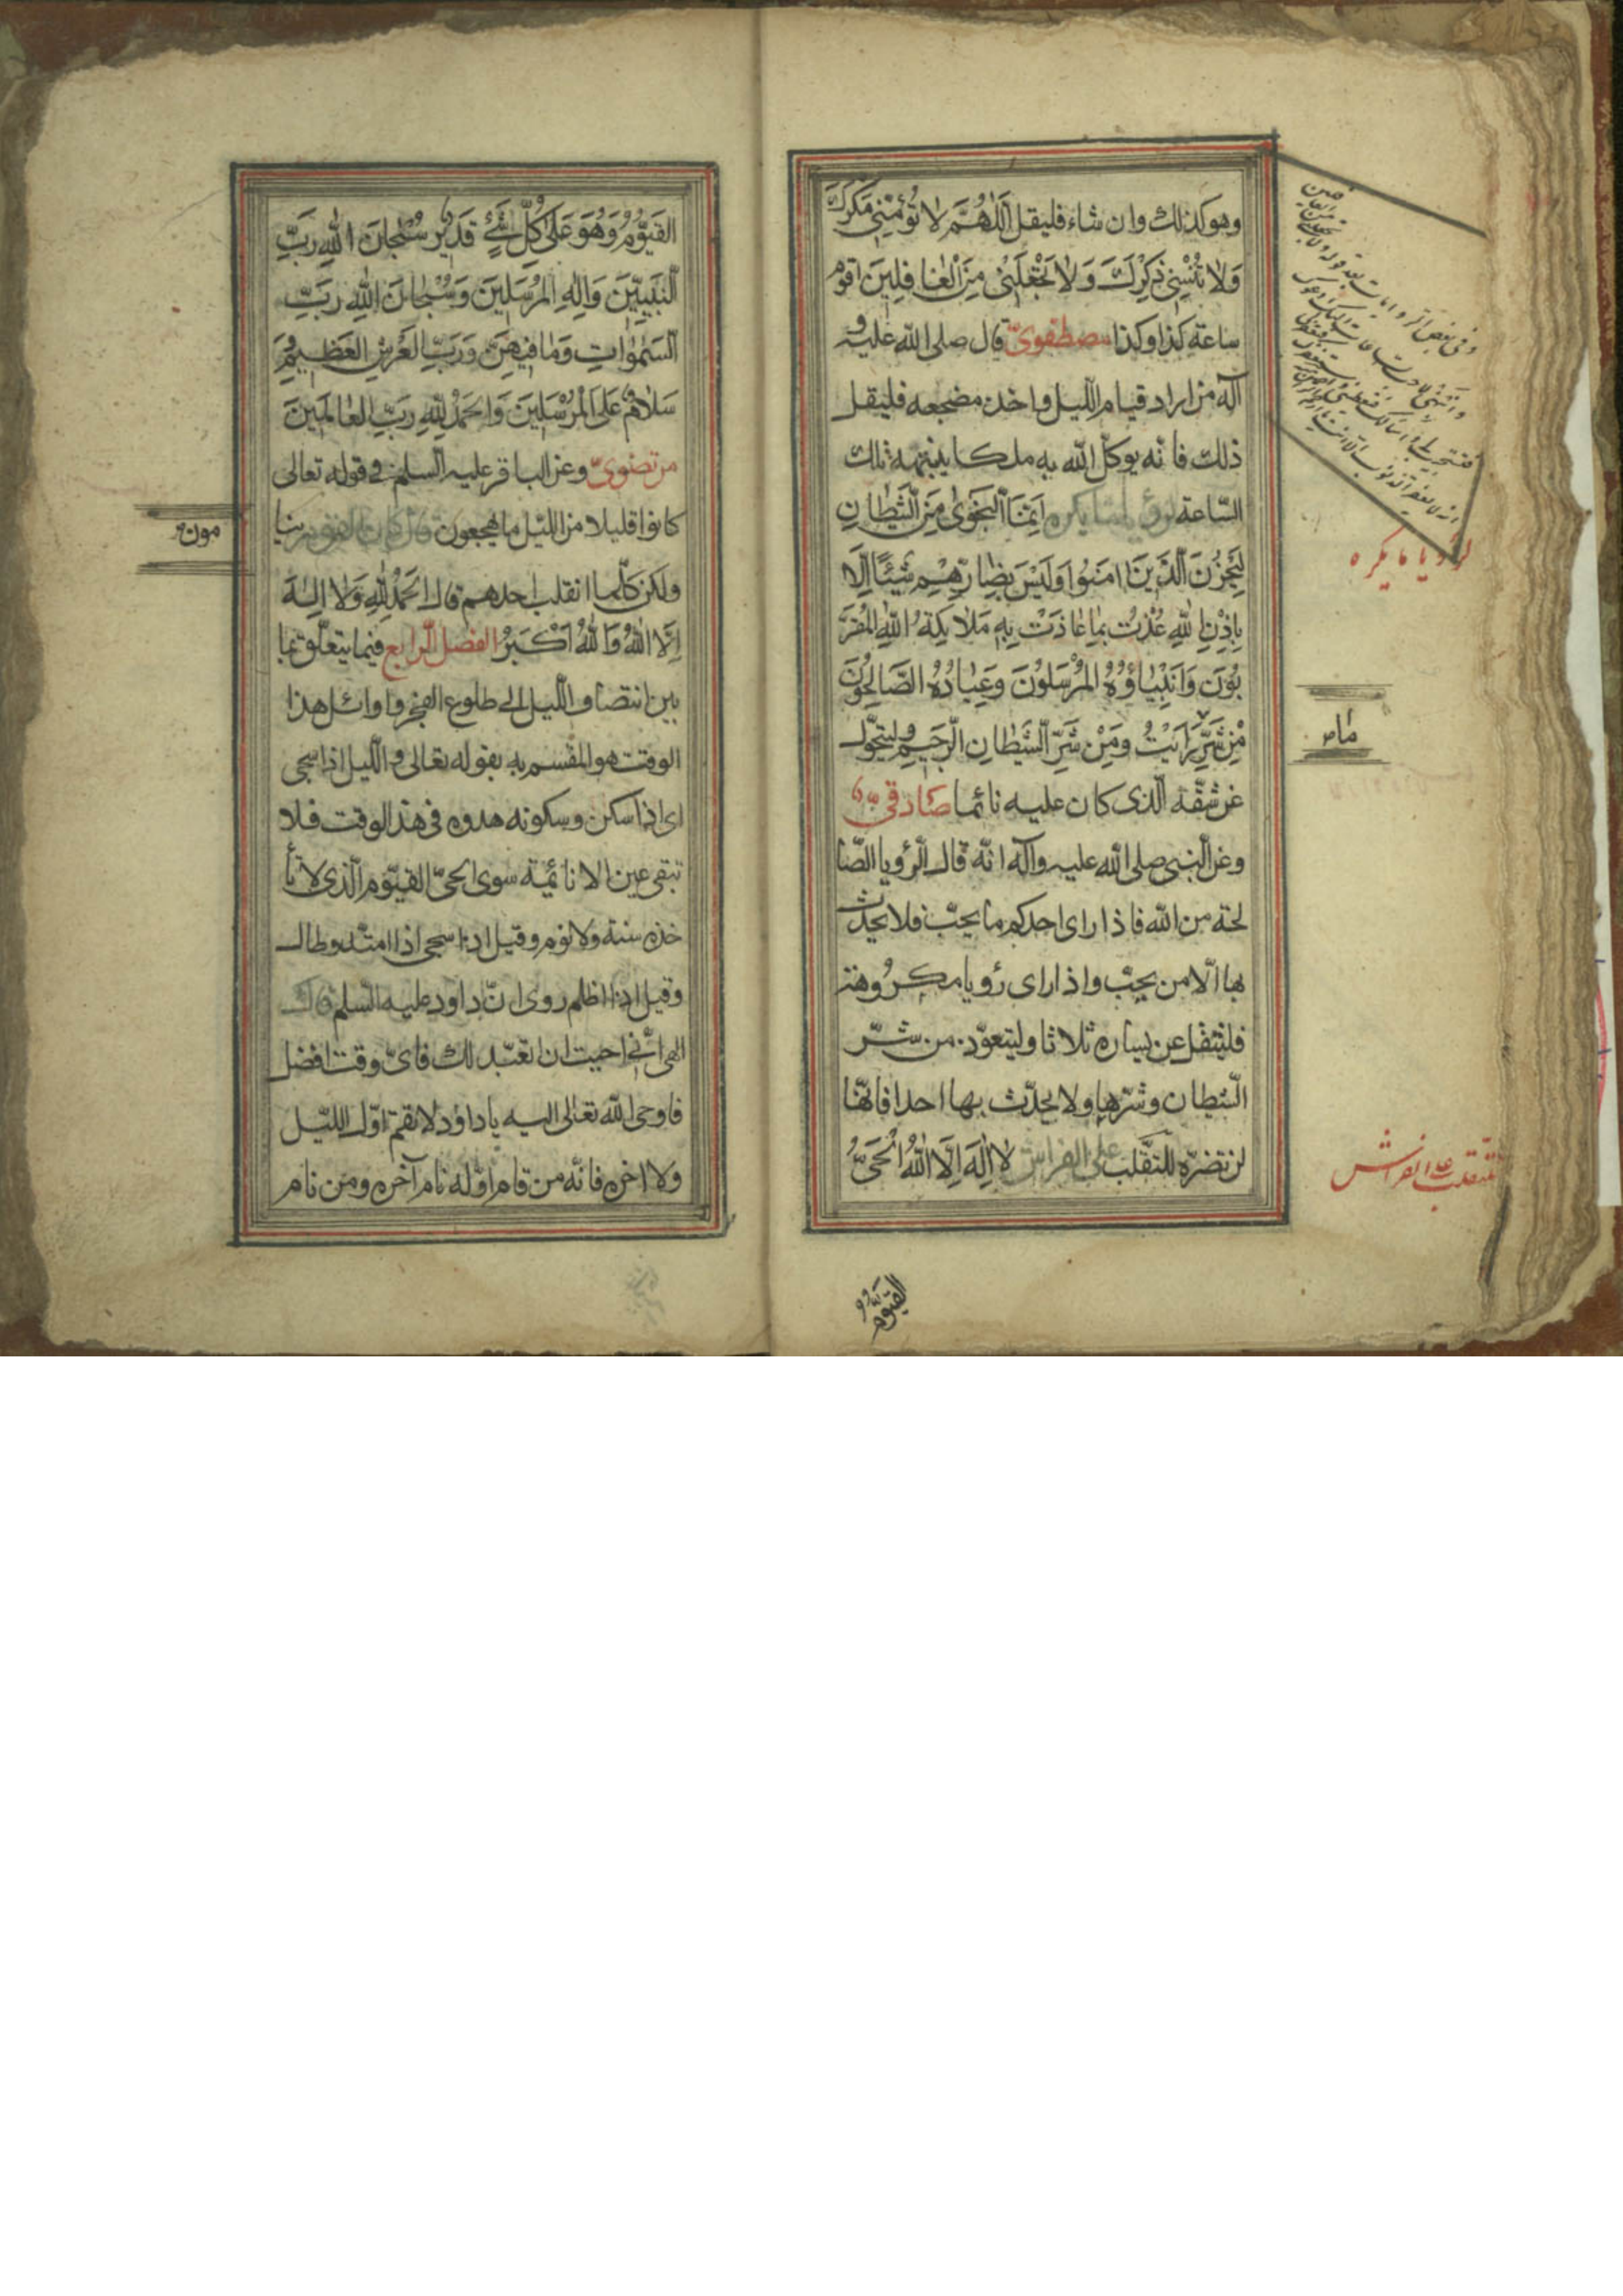 وهو كذلك وان شاء فليقل اَللّٰهُمَّ لا تُؤْمِنّي مَكْرَكَ
وَلا تُنْسِني ذِكْرَكَ وَلا تَجْعَلْني مِنَ الْغافِلينَ اقوم
ساعة كذا وكذا مصطفوىّ قال صلى الله عليه و
آله من اراد قيام الليل واخذ مضجعه فليقل
ذلك فانّه يوكّل الله به ملكا ينبّهه تلك
السّاعة لرؤيا ما يكره اِنَّمَا النَّجْوىٰ مِنَ الشَّيْطانِ
لِيَحْزُنَ الَّذينَ اٰمَنُوا وَلَيْسَ بِضارِّهِمْ شَيْئًا اِلّا
بِاِذْنِ اللهِ عُذْتُ بِما عاذَتْ بِهِ مَلائِكَةُ اللهِ المُقَرَّ
بُونَ وَاَنْبِياؤُهُ المُرْسَلُونَ وَعِبادُهُ الصّالِحُونَ
مِنْ شَرِّ ما رَاَيْتُ وَمِنْ شَرِّ الشَّيْطانِ الرَّجيمِ وليتحوّل
عن شقّه الّذى كان عليه نائما صادقىّ
وعن النبى صلى الله عليه وآله انّه قال الرؤيا الصّا
لحة من الله فاذا راى احدكم ما يحبّ فلا يحدّث
بها الّا من يحبّ واذا راى رؤيا مكروهة
فليتفل عن يساره ثلاثا وليتعوّذ من شرّ
الشيطان وشرّها ولا يحدّث بها احدا فانّها
لن تضرّه للتقلّب على الفراش لا اِلٰهَ اِلَّا اللهُ الْحَيُّ
القيّوم
وفى بعض الروايات بعد قوله ولا تجعلنى من الغافلين
لرؤيا ما يكره
للتقلب على الفراش
القَيُّومُ وَهُوَ عَلىٰ كُلِّ شَيْءٍ قَديرٌ سُبْحانَ اللهِ رَبِّ
النَّبِيّينَ وَاِلٰهِ المُرْسَلينَ وَسُبْحانَ اللهِ رَبِّ
السَّمٰواتِ وَما فيهِنَّ وَرَبِّ العَرْشِ العَظيمِ وَ
سَلامٌ عَلَى المُرْسَلينَ وَالحَمْدُ لِلّٰهِ رَبِّ العالَمينَ
مرتضوىّ وعن الباقر عليه السلم فى قوله تعالى
كانوا قليلا من الليل ما يهجعون قال كان القوم ينا
مون
ولكن كلّما انقلب احدهم قال الحَمْدُ لِلّٰهِ وَلا اِلٰهَ
اِلَّا اللهُ وَاللهُ اَكْبَرُ الفصل الرابع فيما يتعلّق بما
بين انتصاف الليل الى طلوع الفجر واوائل هذا
الوقت هو المقسم به بقوله تعالى والليل اذا سجى
اى اذا سكن وسكونه هدوه فى هذا الوقت فلا
تبقى عين الا نائمة سوى الحىّ القيّوم الّذى لا تأ
خذه سنة ولا نوم وقيل اذا سجى اذا امتد وطال
وقيل اذا اظلم روى انّ داود عليه السلم قال
الهى انّى احببت ان اتعبّد لك فاىّ وقت افضل
فاوحى الله تعالى اليه يا داود لا تقم اوّل الليل
ولا اخره فانّه من قام اوّله نام آخره ومن نام